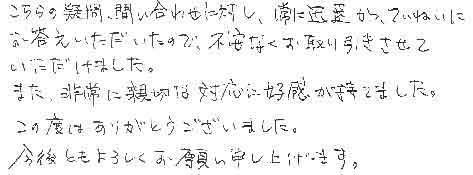 こちらの疑問、問い合わせに対し、常に迅速かつ、ていねいに
お答えいただいたので、不安なくお取り引きさせて
いただけました。
また、非常に親切な対応に好感が持てました。
この度はありがとうございました。
今後ともよろしくお願い申し上げます。